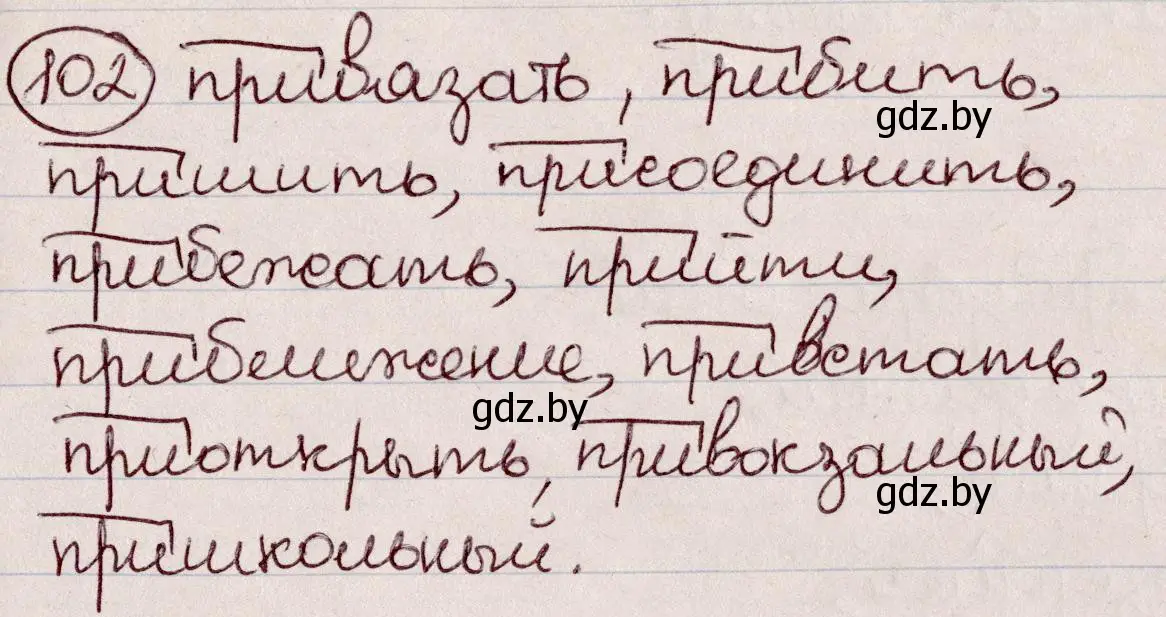 102 привязать, прибить,
gdz.by
пришить, присоединить,
прибежать, прийти,
приближение, привстать,
gdz.by
приоткрыть, привокзальный,
gdz.by
пришкольный.